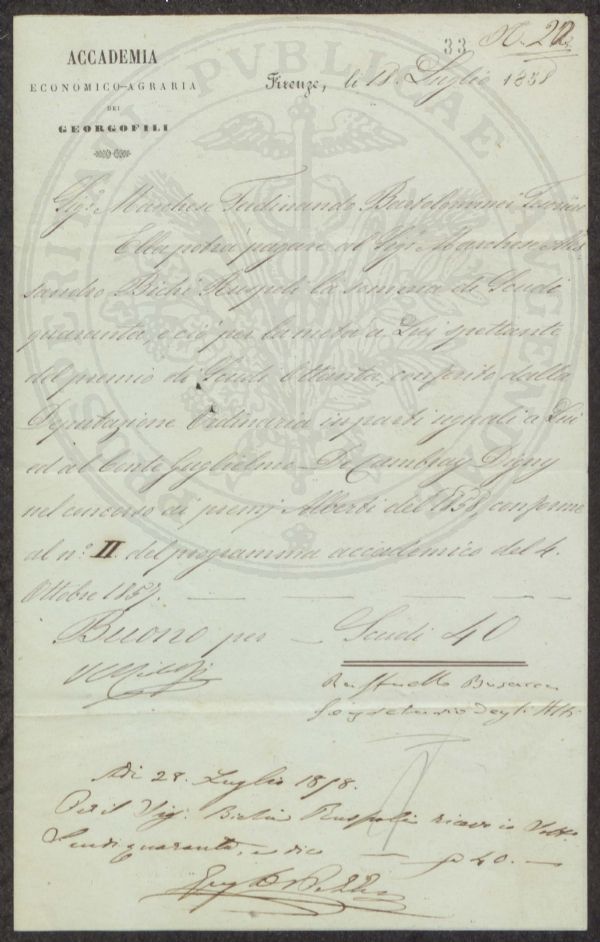 33 N. 22
ACCADEMIA
ECONOMICO-AGRARIA
DEI
GEORGOFILI
Firenze, li 18. Luglio 1858
Sigr. Marchese Ferdinando Bartolommei
Ella potrà pagare al Sigr. Marchese Ales
sandro Bichi Ruspoli la somma di Scudi
quaranta, e ciò per la metà a Lui spettante
del premio di Scudi Ottanta, conferito dalla
Deputazione Ordinaria in parti uguali a Lui
ed al Conte Guglielmo De Cambray Digny
nel concorso di premj Alberti del 1858, conforme
al n.° II. del programma accademico del 4.
Ottobre 1857.
Buono per — Scudi 40
Raffaello Busacca
Segretario degli Atti
Adi 28. Luglio 1858.
Per il Sig. Bichi Ruspoli ricevei io
Scudi quaranta, e dico — 40. —
PROSPERITATI PVBLICAE AVGENDAE